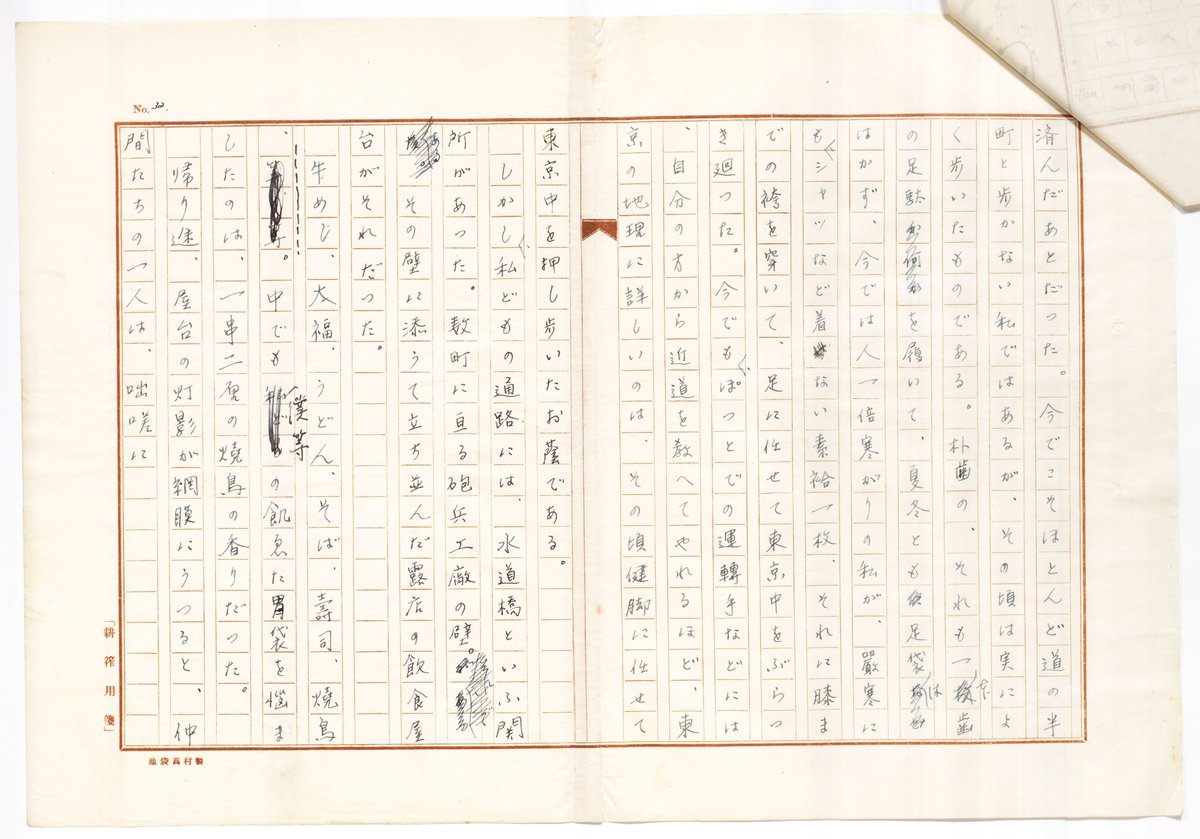 No. 22.
済んだあとだつた。今でこそほとんど道の半
町と歩かない私ではあるが、その頃は実によ
く歩いたものである。朴歯の、それも一た歯
の足駄を履いて、夏冬とも足袋は
はかず、今では人一倍寒がりの私が、嚴寒に
もシャツなど着ない素袷一枚、それに膝ま
での袴を穿いて、足に任せて東京中をぶらつ
き廻つた。今でもぽつとでの運轉手などには
、自分の方から近道を教へてやれるほど、東
京の地理に詳しいのは、その頃健脚に任せて
東京中を押し歩いたお蔭である。
しかし私どもの通路には、水道橋といふ関
所があつた。数町に亘る砲兵工廠の壁。
その壁に添うて立ち並んだ露店の飲食屋
台がそれだつた。
牛めし、大福、うどん、そば、壽司、燒鳥
、。中でも僕等の飢ゑた胃袋を悩ま
したのは、一串二厘の燒鳥の香りだつた。
帰り途、屋台の灯影が網膜にうつると、仲
間たちの一人は、咄嗟に
「耕搾用箋」
池袋髙村製